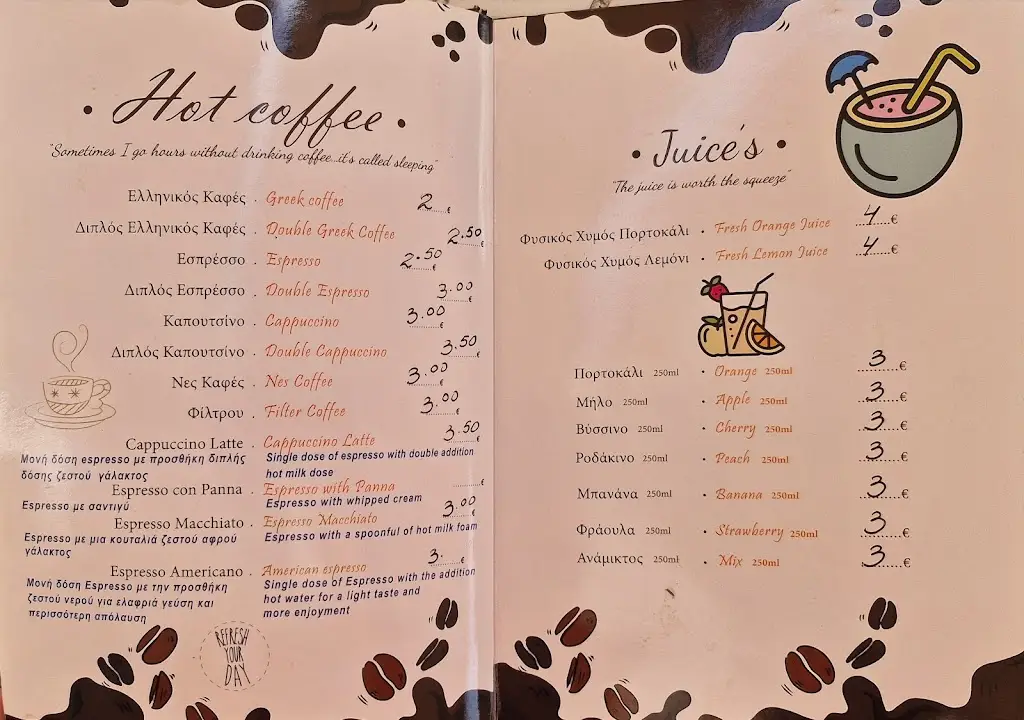 • Hot coffee •
"Sometimes I go hours without drinking coffee...it's called sleeping"
Ελληνικός Καφές . Greek coffee 2 ....€
Διπλός Ελληνικός Καφές . Double Greek Coffee 2.50 €
Εσπρέσσο . Espresso 2.50 €
Διπλός Εσπρέσσο . Double Espresso 3.00 €
Καπουτσίνο . Cappuccino 3.00 €
Διπλός Καπουτσίνο . Double Cappuccino 3.50 €
Νες Καφές . Nes Coffee 3.00 €
Φίλτρου . Filter Coffee 3.00 €
Cappuccino Latte . Cappuccino Latte 3.50 €
Μονή δόση espresso με προσθήκη διπλής
δόσης ζεστού γάλακτος
Single dose of espresso with double addition
hot milk dose
Espresso con Panna . Espresso with Panna ........€
Espresso με σαντιγύ
Espresso with whipped cream
Espresso Macchiato . Espresso Macchiato 3.00 €
Espresso με μια κουταλιά ζεστού αφρού
γάλακτος
Espresso with a spoonful of hot milk foam
Espresso Americano . American espresso 3. €
Μονή δόση Espresso με την προσθήκη
ζεστού νερού για ελαφριά γεύση και
περισσότερη απόλαυση
Single dose of Espresso with the addition
hot water for a light taste and
more enjoyment
REFRESH
YOUR
DAY
• Juice's •
"The juice is worth the squeeze"
Φυσικός Χυμός Πορτοκάλι . Fresh Orange Juice 4 €
Φυσικός Χυμός Λεμόνι . Fresh Lemon Juice 4 €
Πορτοκάλι 250ml • Orange 250ml 3 €
Μήλο 250ml • Apple 250ml 3 €
Βύσσινο 250ml • Cherry 250ml 3 €
Ροδάκινο 250ml • Peach 250ml 3 €
Μπανάνα 250ml • Banana 250ml 3 €
Φράουλα 250ml • Strawberry 250ml 3 €
Ανάμικτος 250ml • Mix 250ml 3 €